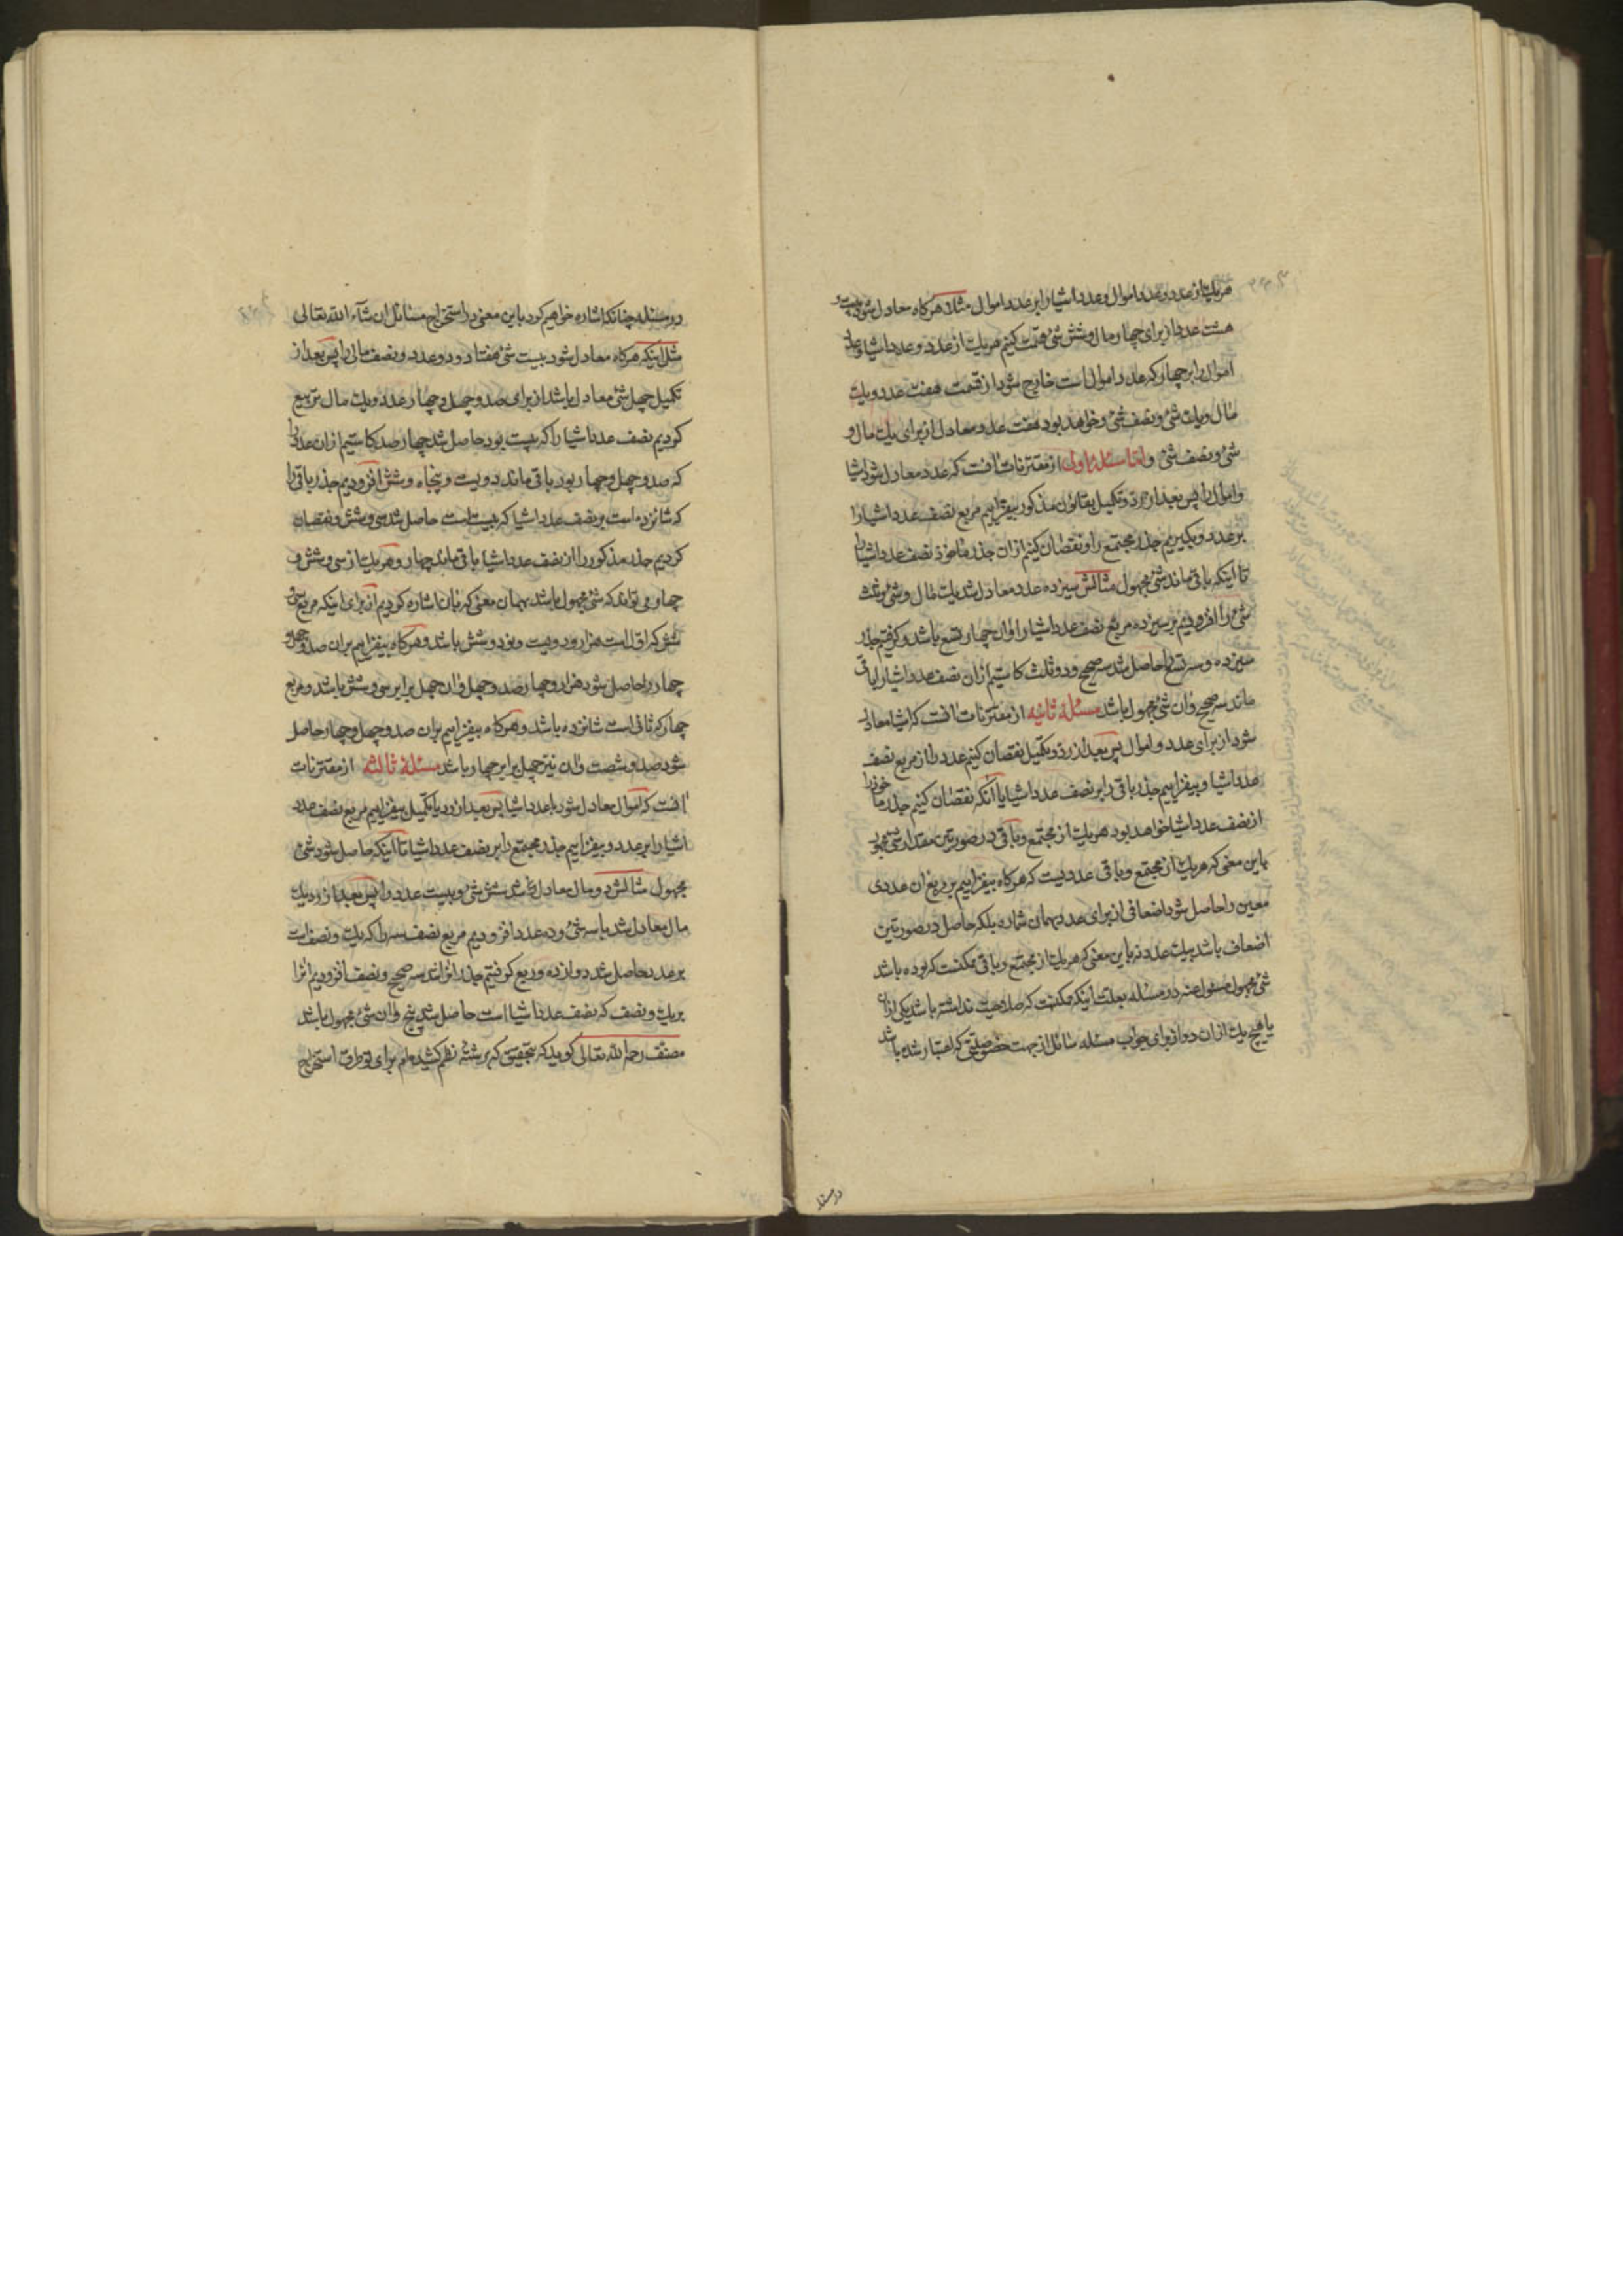 هریک از عدد و عدد اموال و عدد اشیا را بر عدد اموال مثلا هرکاه معادل شود بیست و
هشت عدد از برای چهار مال و شش شئ قسمت کنیم هریک از عدد و عدد اشیا و عدد
اموال را بر چهار که عدد اموال است خارج شود از قسمت هفت عدد و یک
مال و یک شئ و نصف شئ و خواهد بود هفت عدد معادل از برای یک مال و
شئ و نصف شئ و اما مسئلهٔ اولی از مقترنات آنست که عدد معادل شود اشیا
و اموال را پس بعد از رد و تکمیل بقانون مذکور بیفزاییم مربع نصف عدد اشیا را
بر عدد و بکیریم جذر مجتمع را و نقصان کنیم ازان جذر ماخوذ نصف عدد اشیا را
تا اینکه باقی ماند شئ مجهول مثالش سیزده عدد معادل شد یک مال و شئ و ثلث
شئ را افزودیم بر سیزده مربع نصف عدد اشیا را و ان چهار تسع باشد و کرفتیم جذر
سیزده و چهار تسع را حاصل شد سه صحیح و دو ثلث کاستیم ازان نصف عدد اشیا را باقی
ماند سه صحیح و ان شئ مجهول باشد مسئلهٔ ثانیه از مقترنات آنست که اشیا معادل
شود از برای عدد و اموال پس بعد از رد و تکمیل نقصان کنیم عدد را از مربع نصف
عدد اشیا و بیفزاییم جذر باقی را بر نصف عدد اشیا یا آنکه نقصان کنیم جذر ماخوذ را
از نصف عدد اشیا خواهد بود هریک از مجتمع و باقی در صورتین مقدار شئ مجهول
باین معنی که هریک از مجتمع و باقی عددیست که هرکاه بیفزاییم بر مربع ان عددی
معین را حاصل شود اضعافی از برای عدد بهمان شماره بلکه حاصل در صورتین
اضعاف باشد بیک عدد نه باین معنی که هریک از مجتمع و باقی ممکنست که بوده باشد
شئ مجهول مسئول عنه در مسئله بعلت اینکه ممکنست که صلاحیت نداشته باشد یکی ازان
یا هیچ یک ازان دو از برای جواب مسئله سائل از جهت خصوصیتی که اعتبار شده باشد
در مسئله
در مسئله چنانکه اشاره خواهیم کرد باین معنی در استخراج مسائل ان شآء الله تعالی
مثل اینکه هرکاه معادل شود بیست شئ هفتاد و دو عدد و نصف مالی را پس بعد از
تکمیل چهل شئ معادل باشد از برای صد و چهل و چهار عدد و یک مال تربیع
کردیم نصف عدد اشیا را که بیست بود حاصل شد چهار صد کاستیم ازان عدد را
که صد و چهل و چهار بود باقی ماند دویست و پنجاه و شش افزودیم جذر باقی را
که شانزده است بر نصف عدد اشیا که بیست است حاصل شد سی و شش و نقصان
کردیم جذر مذکور را از نصف عدد اشیا باقی ماند چهار و هریک از سی و شش و
چهار می تواند که شئ مجهول باشد بهمان معنی که بان اشاره کردیم از برای اینکه مربع سی و
شش که اول است هزار و دویست و نود و شش باشد و هرکاه بیفزاییم بران صد و چهل و
چهار را حاصل شود هزار و چهار صد و چهل و ان چهل برابر سی و شش باشد و مربع
چهار که ثانی است شانزده باشد و هرکاه بیفزاییم بران صد و چهل و چهار حاصل
شود صد و شصت و ان نیز چهل برابر چهار باشد مسئلهٔ ثالثه از مقترنات
آنست که اموال معادل شود با عدد اشیا پس بعد از رد یا تکمیل بیفزاییم مربع نصف عدد
اشیا را بر عدد و بیفزاییم جذر مجتمع را بر نصف عدد اشیا تا اینکه حاصل شود شئ
مجهول مثالش دو مال معادل باشد شش شئ و بیست عدد را پس بعد از رد یک
مال معادل شد با سه شئ و ده عدد افزودیم مربع نصف سه را که یک و نصف است
بر عدد حاصل شد دوازده و ربع کرفتیم جذر انرا شد سه صحیح و نصف افزودیم انرا
بر یک و نصف که نصف عدد اشیا است حاصل شد پنج و ان شئ مجهول باشد
مصنف رحمه الله تعالی کوید که بتحقیق که برشتهٔ نظم کشیده‌ام برای تو طرق استخراج